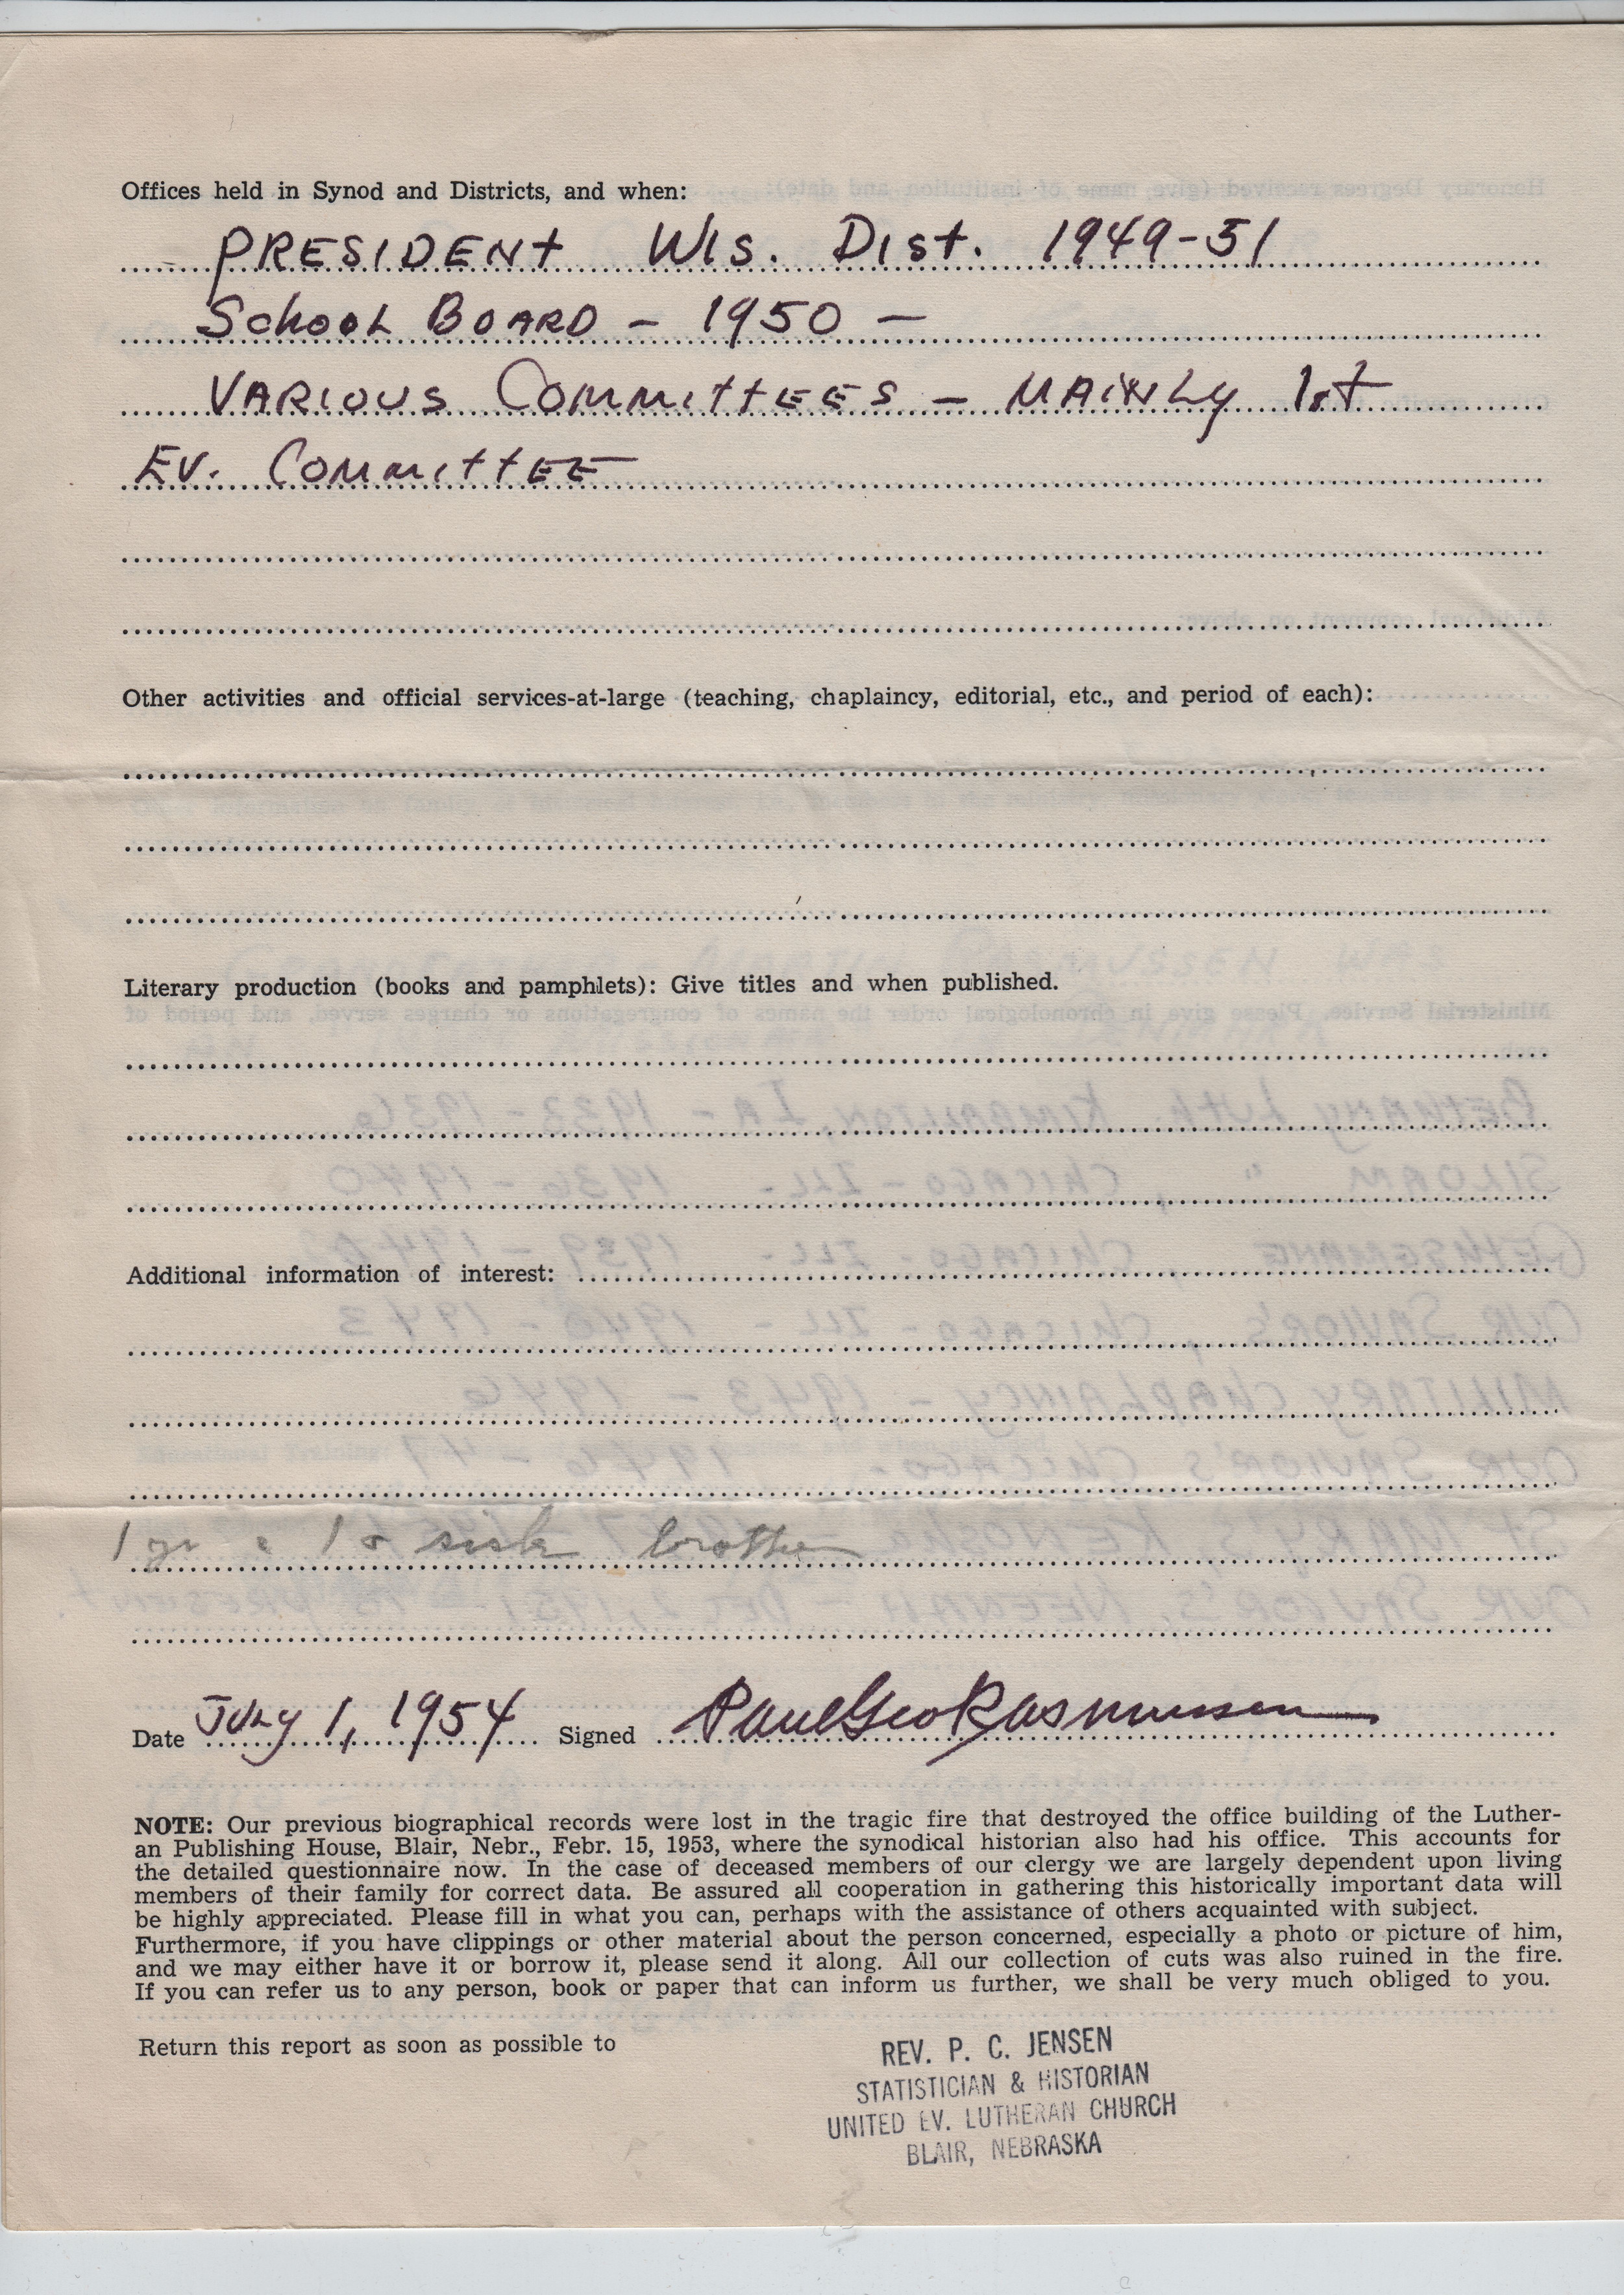 Offices held in Synod and Districts, and when:
PRESIDENT WIS. DIST. 1949-51
SCHOOL BOARD - 1950 -
VARIOUS COMMITTEES - MAINLY 1st
EV. COMMITTEE
Other activities and official services-at-large (teaching, chaplaincy, editorial, etc., and period of each):
Literary production (books and pamphlets): Give titles and when published.
Additional information of interest:
brother
Date JULY 1, 1954 Signed Paul Geo Rasmussen
NOTE: Our previous biographical records were lost in the tragic fire that destroyed the office building of the Luther-
an Publishing House, Blair, Nebr., Febr. 15, 1953, where the synodical historian also had his office. This accounts for
the detailed questionnaire now. In the case of deceased members of our clergy we are largely dependent upon living
members of their family for correct data. Be assured all cooperation in gathering this historically important data will
be highly appreciated. Please fill in what you can, perhaps with the assistance of others acquainted with subject.
Furthermore, if you have clippings or other material about the person concerned, especially a photo or picture of him,
and we may either have it or borrow it, please send it along. All our collection of cuts was also ruined in the fire.
If you can refer us to any person, book or paper that can inform us further, we shall be very much obliged to you.
Return this report as soon as possible to
REV. P. C. JENSEN
STATISTICIAN & HISTORIAN
UNITED EV. LUTHERAN CHURCH
BLAIR, NEBRASKA